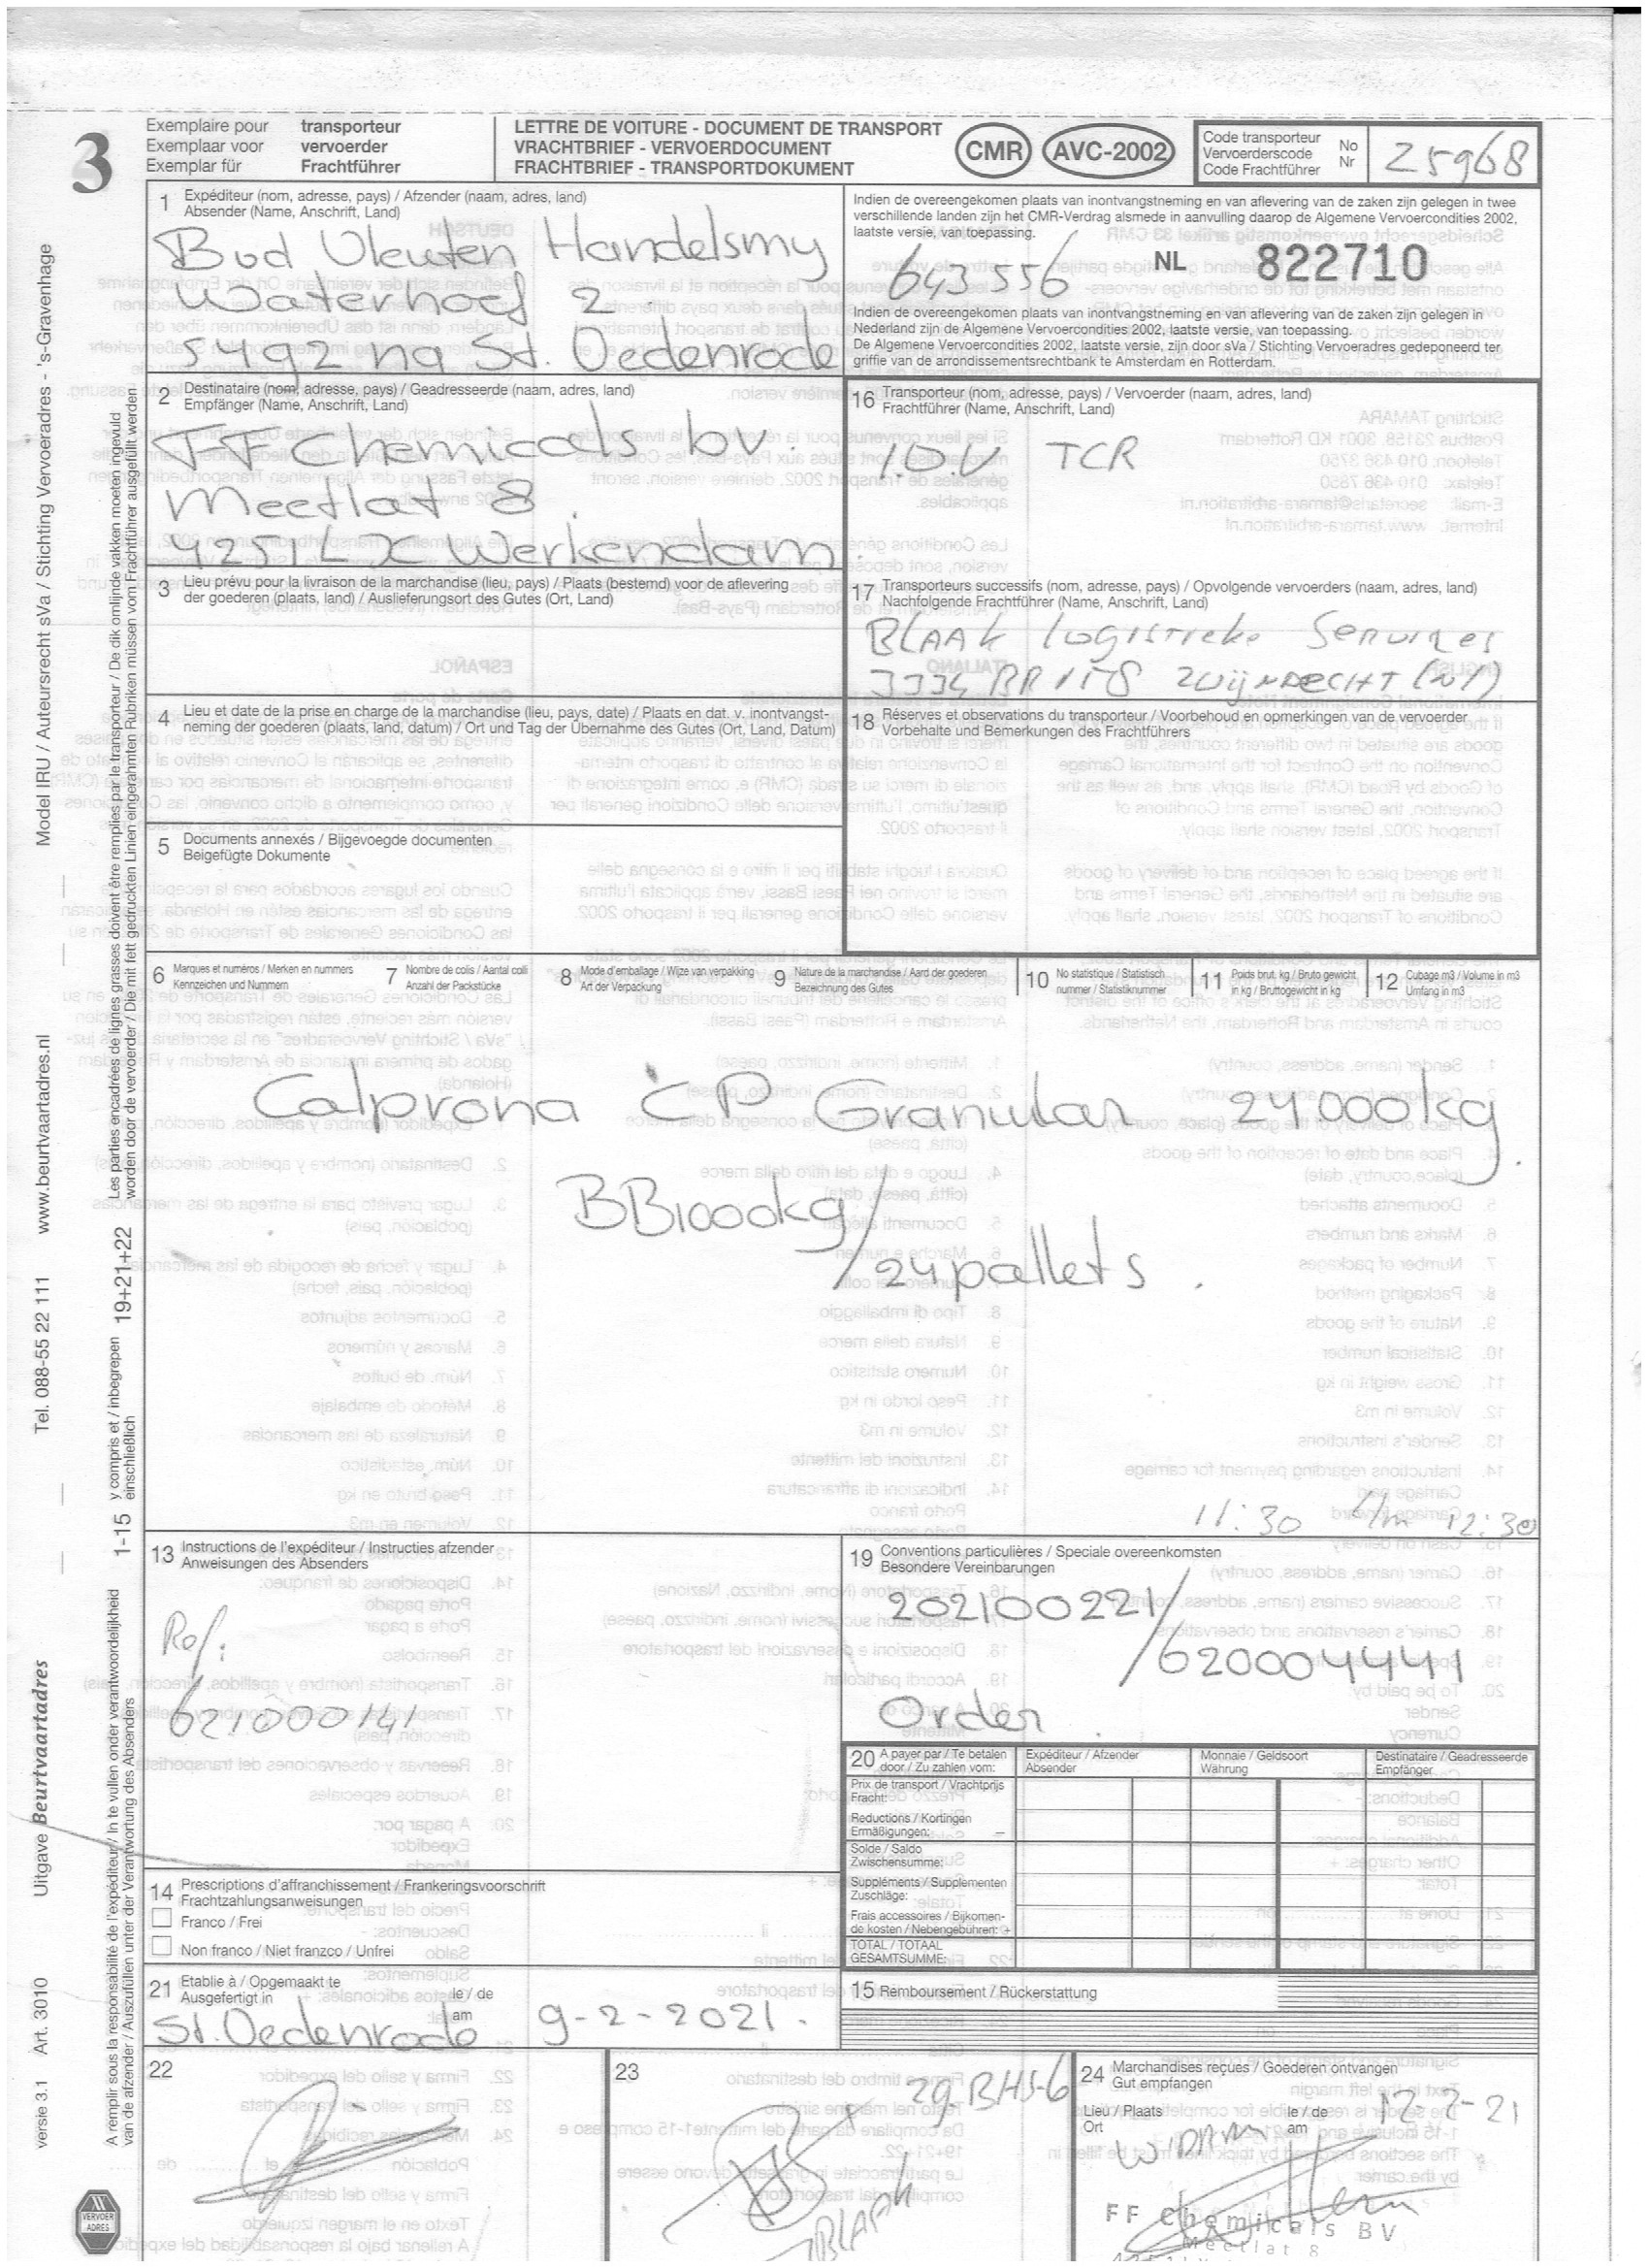 3
Exemplaire pour transporteur
Exemplaar voor vervoerder
Exemplar für Frachtführer
LETTRE DE VOITURE - DOCUMENT DE TRANSPORT
VRACHTBRIEF - VERVOERDOCUMENT
FRACHTBRIEF - TRANSPORTDOKUMENT
CMR AVC-2002
Code transporteur No
Vervoerderscode Nr
Code Frachtführer
25968
1 Expéditeur (nom, adresse, pays) / Afzender (naam, adres, land)
Absender (Name, Anschrift, Land)
Bud Vleuten Handelsmy
Waterhoef 2
5492 na St. Oedenrode
Indien de overeengekomen plaats van inontvangstneming en van aflevering van de zaken zijn gelegen in twee
verschillende landen zijn het CMR-Verdrag alsmede in aanvulling daarop de Algemene Vervoercondities 2002,
laatste versie, van toepassing.
643556 NL 822710
Indien de overeengekomen plaats van inontvangstneming en van aflevering van de zaken zijn gelegen in
Nederland zijn de Algemene Vervoercondities 2002, laatste versie, van toepassing.
De Algemene Vervoercondities 2002, laatste versie, zijn door sVa / Stichting Vervoeradres gedeponeerd ter
griffie van de arrondissementsrechtbank te Amsterdam en Rotterdam.
2 Destinataire (nom, adresse, pays) / Geadresseerde (naam, adres, land)
Empfänger (Name, Anschrift, Land)
FF Chemicals bv.
Meetlat 8
4251 LX Werkendam.
16 Transporteur (nom, adresse, pays) / Vervoerder (naam, adres, land)
Frachtführer (Name, Anschrift, Land)
I.O.V TCR
3 Lieu prévu pour la livraison de la marchandise (lieu, pays) / Plaats (bestemd) voor de aflevering
der goederen (plaats, land) / Auslieferungsort des Gutes (Ort, Land)
17 Transporteurs successifs (nom, adresse, pays) / Opvolgende vervoerders (naam, adres, land)
Nachfolgende Frachtführer (Name, Anschrift, Land)
BLAAK Logistieke Services
3334 BR ZWIJNDRECHT (NL)
4 Lieu et date de la prise en charge de la marchandise (lieu, pays, date) / Plaats en dat. v. inontvangst-
neming der goederen (plaats, land, datum) / Ort und Tag der Übernahme des Gutes (Ort, Land, Datum)
18 Réserves et observations du transporteur / Voorbehoud en opmerkingen van de vervoerder
Vorbehalte und Bemerkungen des Frachtführers
5 Documents annexés / Bijgevoegde documenten
Beigefügte Dokumente
6 Marques et numéros / Merken en nummers
Kennzeichen und Nummern
7 Nombre de colis / Aantal colli
Anzahl der Packstücke
8 Mode d'emballage / Wijze van verpakking
Art der Verpackung
9 Nature de la marchandise / Aard der goederen
Bezeichnung des Gutes
10 No statistique / Statistisch
nummer / Statistiknummer
11 Poids brut, kg / Bruto gewicht
in kg / Bruttogewicht in kg
12 Cubage m3 / Volume in m3
Umfang in m3
Calprona CP Granular 24000kg.
BB1000kg/
/24pallets.
11:30 t/m 12:30
13 Instructions de l'expéditeur / Instructies afzender
Anweisungen des Absenders
Ref:
621000141
19 Conventions particulières / Speciale overeenkomsten
Besondere Vereinbarungen
202100221/
/620004441
Order.
20 A payer par / Te betalen
door / Zu zahlen vom:
Expéditeur / Afzender
Absender
Monnaie / Geldsoort
Währung
Destinataire / Geadresseerde
Empfänger
Prix de transport / Vrachtprijs
Fracht:
Reductions / Kortingen
Ermäßigungen: –
Solde / Saldo
Zwischensumme:
Suppléments / Supplementen
Zuschläge:
Frais accessoires / Bijkomen-
de kosten / Nebengebühren: +
TOTAL / TOTAAL
GESAMTSUMME:
14 Prescriptions d'affranchissement / Frankeringsvoorschrift
Frachtzahlungsanweisungen
Franco / Frei
Non franco / Niet franzco / Unfrei
21 Etablie à / Opgemaakt te le / de
Ausgefertigt in am
St. Oedenrode 9-2-2021.
15 Remboursement / Rückerstattung
22
23
29-BHS-6
BLAAK
24 Marchandises reçues / Goederen ontvangen
Gut empfangen
Lieu / Plaats le / de
Ort am
12-2-21
FF Chemicals BV
Meetlat 8
Model IRU / Auteursrecht sVa / Stichting Vervoeradres - 's-Gravenhage
www.beurtvaartadres.nl
Tel. 088-55 22 111
Uitgave Beurtvaartadres
Art. 3010
versie 3.1
Les parties encadrées de lignes grasses doivent être remplies par le transporteur / De dik omlijnde vakken moeten ingevuld
worden door de vervoerder / Die mit fett gedruckten Linien eingerahmten Rubriken müssen vom Frachtführer ausgefüllt werden
19+21+22
y compris et / inbegrepen
einschließlich
1-15
A remplir sous la responsabilité de l'expéditeur / In te vullen onder verantwoordelijkheid
van de afzender / Auszufüllen unter der Verantwortung des Absenders
VERVOER
ADRES